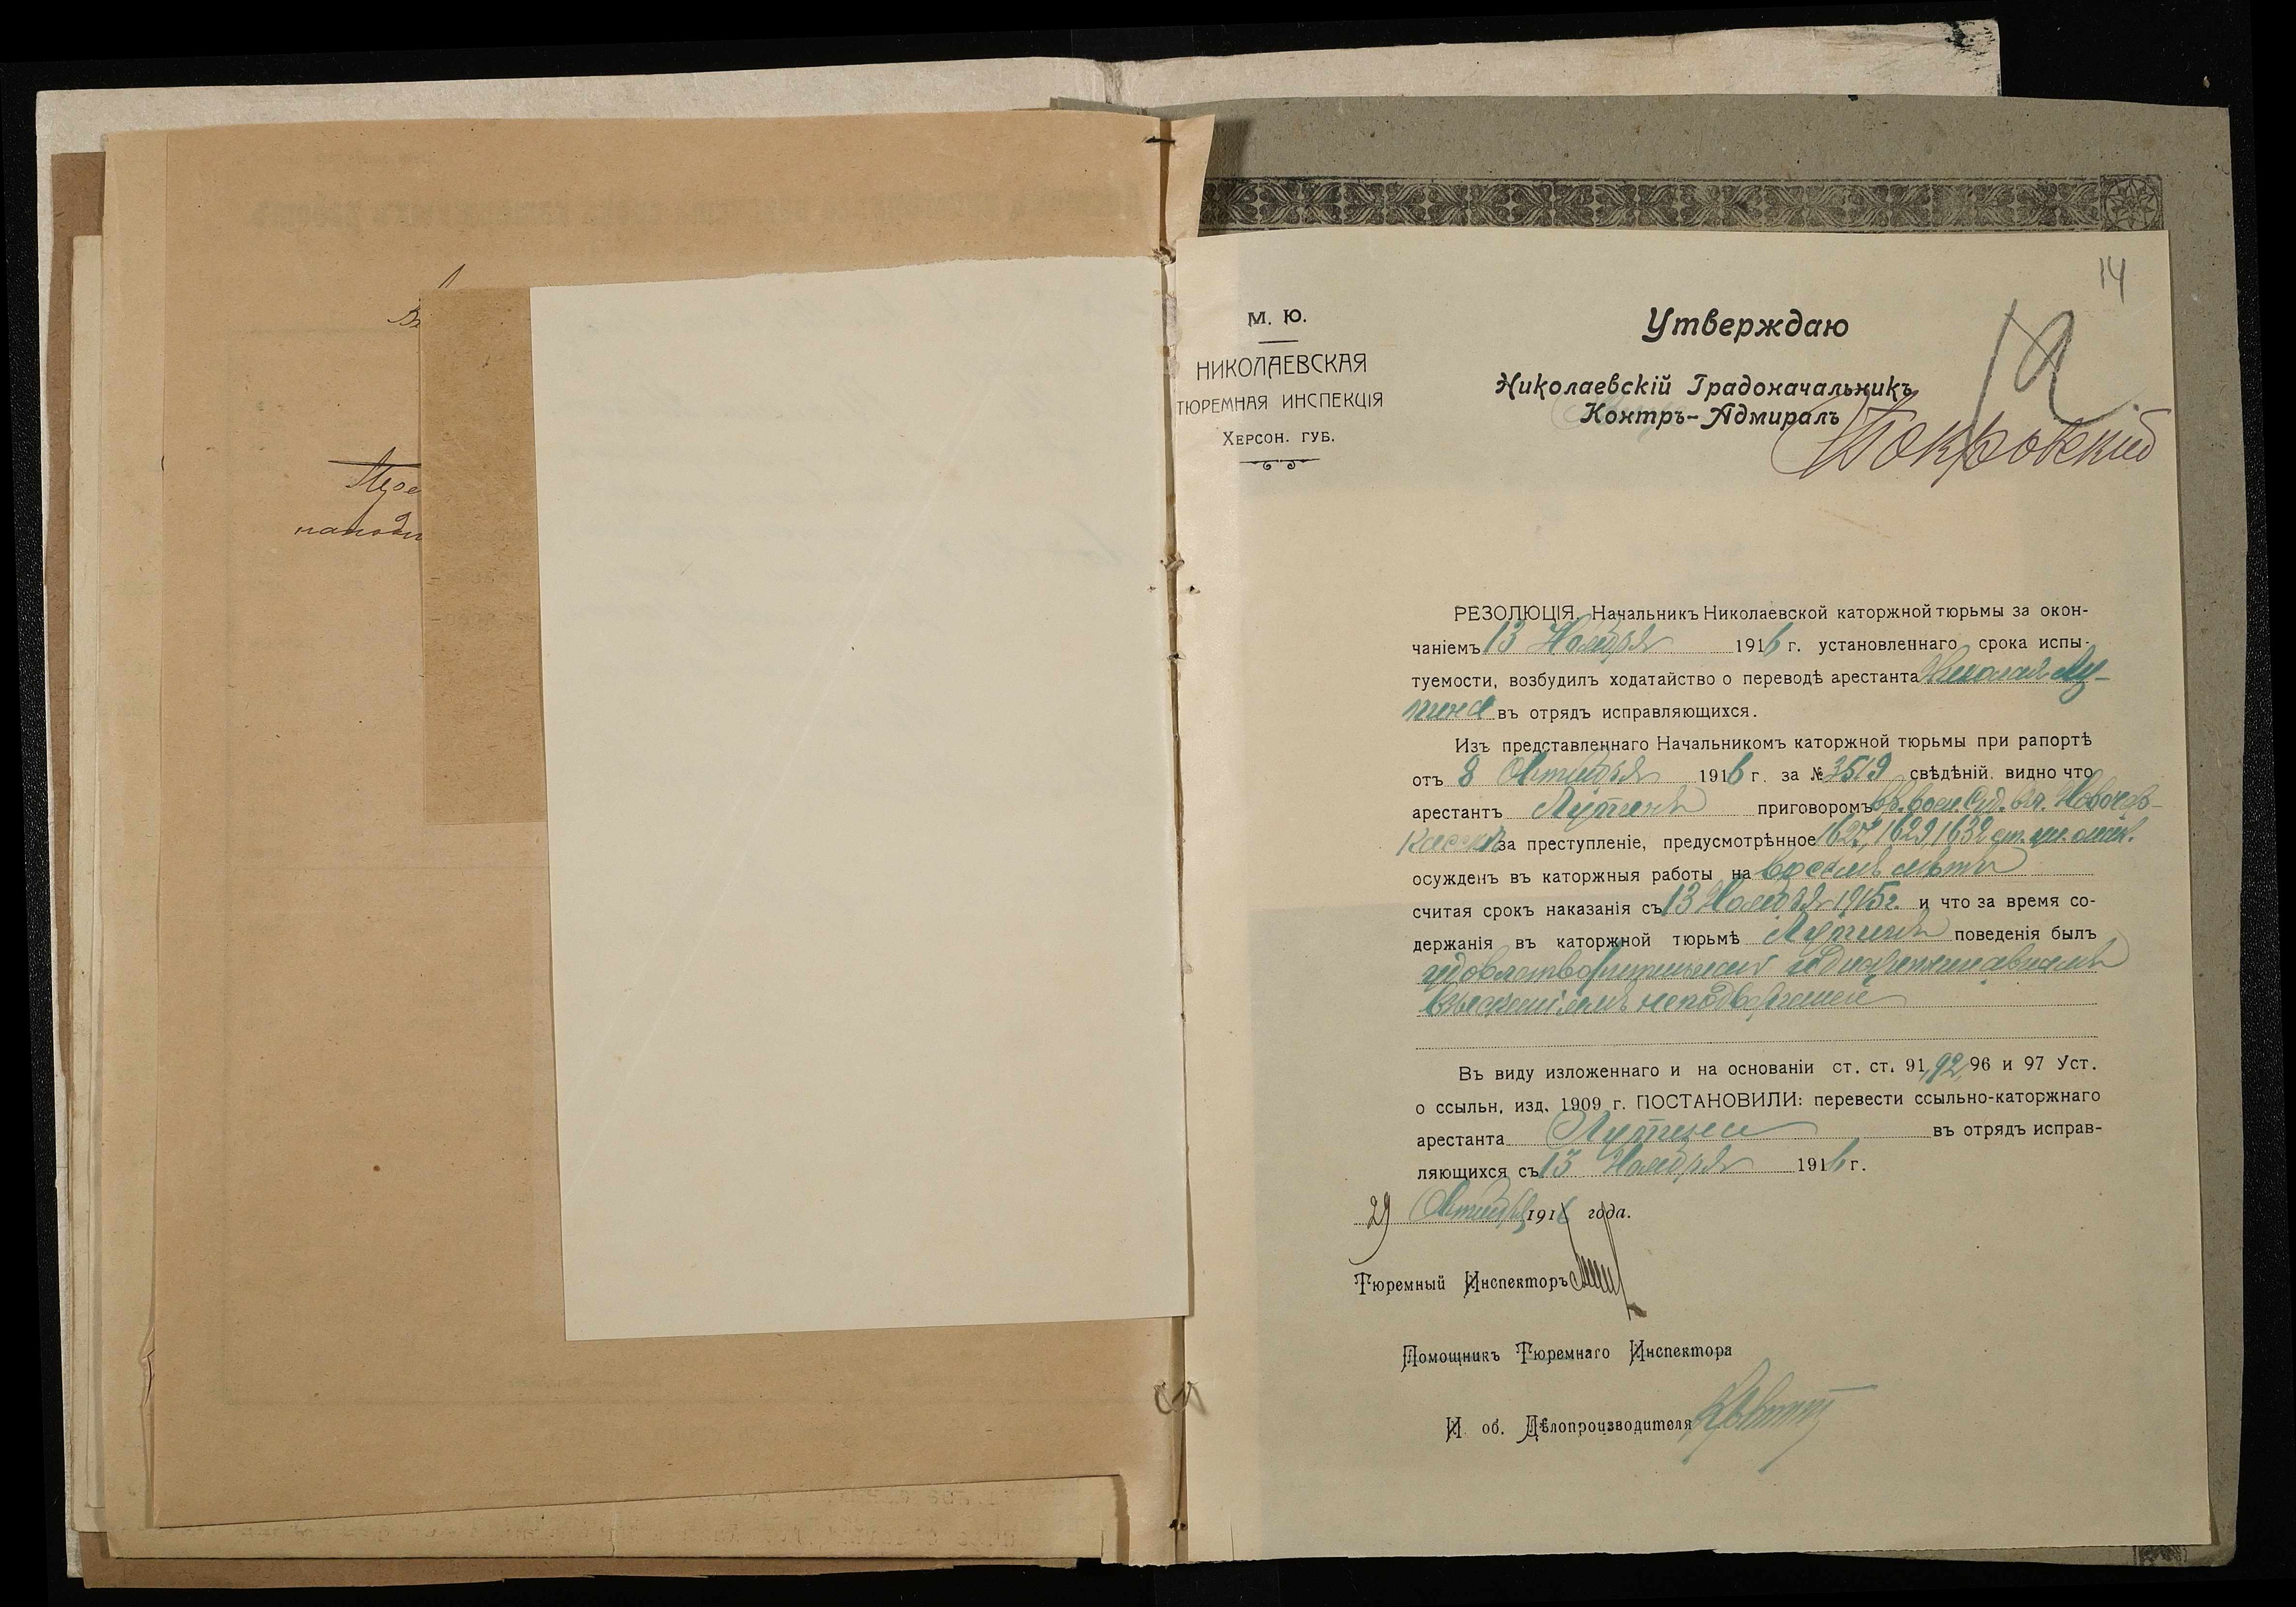 14
12
М. Ю.
НИКОЛАЕВСКАЯ
ТЮРЕМНАЯ ИНСПЕКЦІЯ
ХЕРСОН. ГУБ.
Утверждаю
Николаевскій Градоначальникъ
Контръ-Адмиралъ Покровский
РЕЗОЛЮЦІЯ. Начальникъ Николаевской каторжной тюрьмы за окон-
чаніемъ 13 Ноября 1916 г. установленнаго срока испы-
туемости, возбудилъ ходатайство о переводѣ арестанта Николая Лу-
тина въ отрядъ исправляющихся.
Изъ представленнаго Начальникомъ каторжной тюрьмы при рапортѣ
отъ 8 Октября 1916 г. за № 3519 свѣдѣній видно что
арестантъ Лутинъ приговоромъ вр. воен. суд. въ г. Новочер-
касскѣ за преступленіе, предусмотрѣнное 1627, 1629, 1632 ст. ул. о нак.
осужденъ въ каторжныя работы на восемь лѣтъ
считая срокъ наказанія съ 13 Ноября 1915 г. и что за время со-
держанія въ каторжной тюрьмѣ Лутинъ поведенія былъ
удовлетворительнаго и дисциплинарнымъ
взысканіямъ не подвергался
Въ виду изложеннаго и на основаніи ст. ст. 91, 92, 96 и 97 Уст.
о ссыльн, изд. 1909 г. ПОСТАНОВИЛИ: перевести ссыльно-каторжнаго
арестанта Лутина въ отрядъ исправ-
ляющихся съ 13 Ноября 1916 г.
29 Октября 1916 года.
Тюремный Инспекторъ
Помощникъ Тюремнаго Инспектора
И об. Дѣлопроизводителя